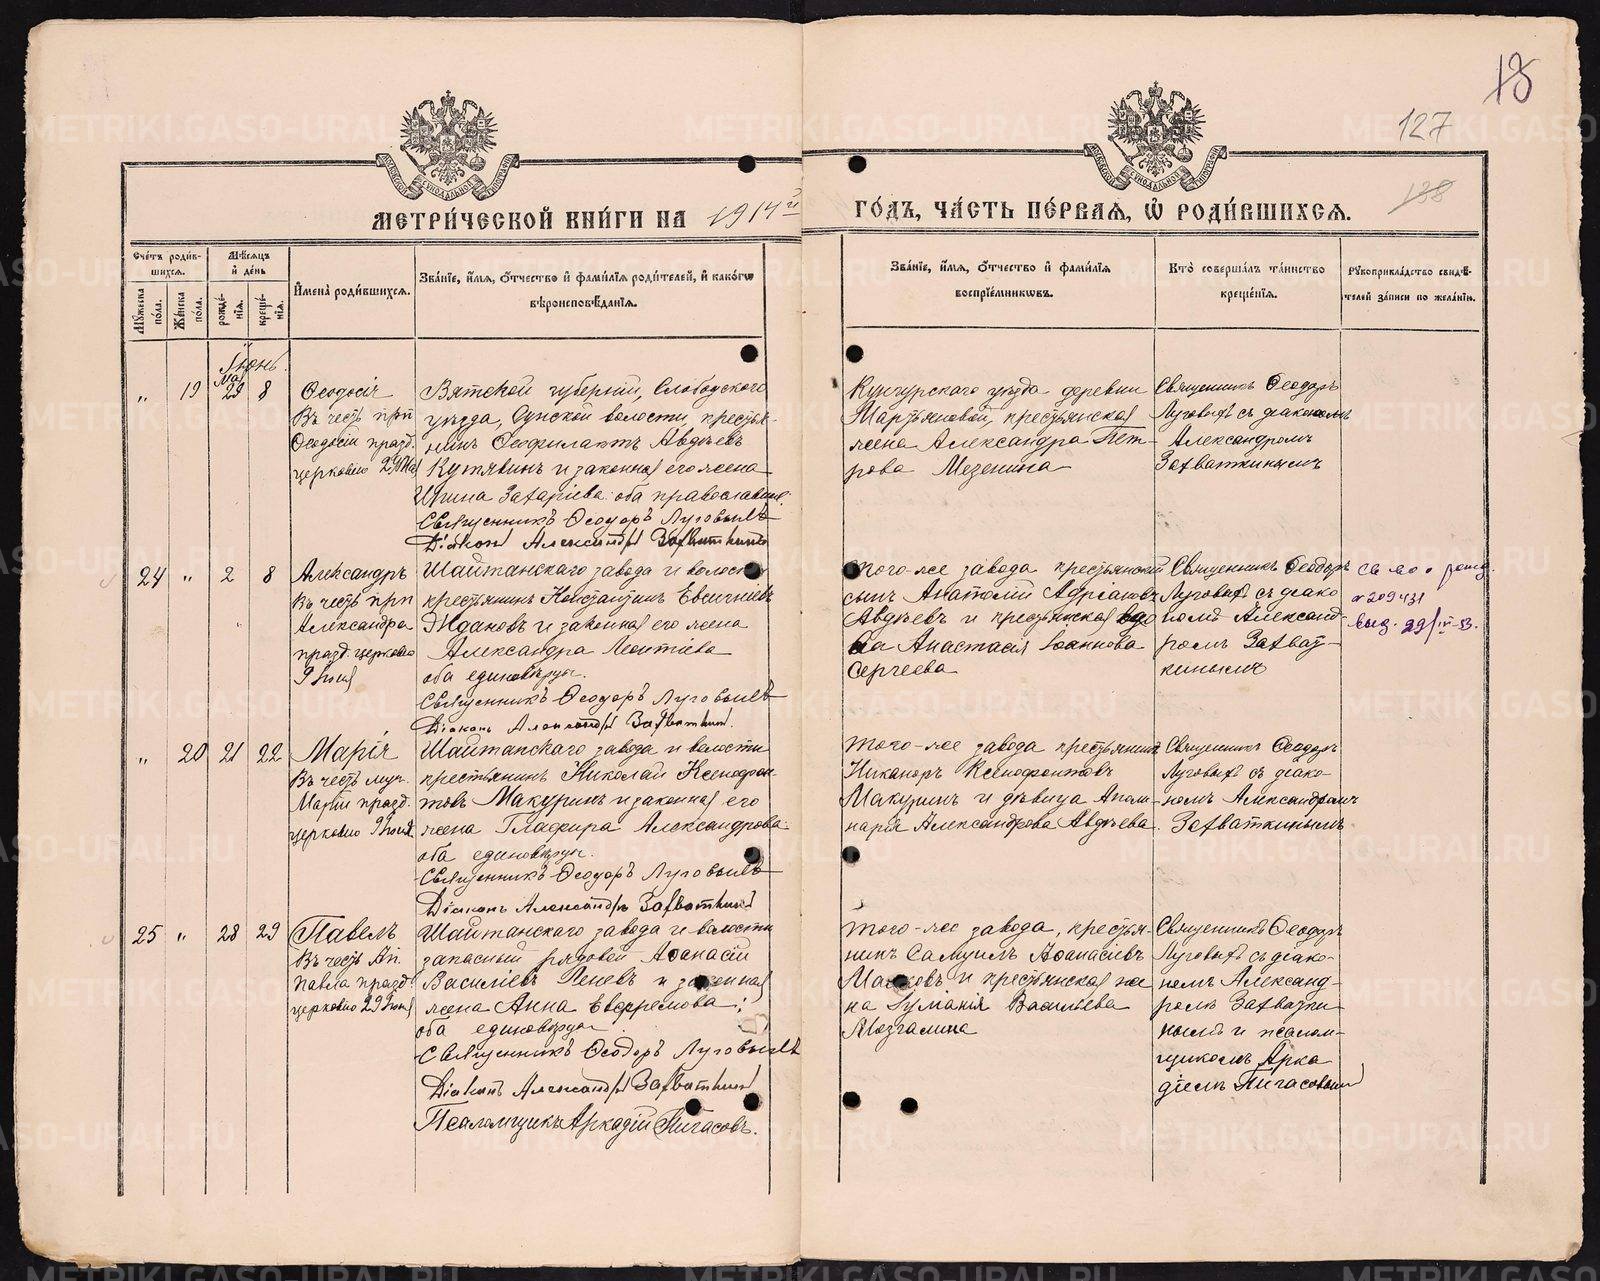 18
127
138
МЕТРИ́ЧЕСКОЙ КНИ́ГИ НА 1914й ГО́ДЪ, ЧА́СТЬ ПЕ́РВАЯ, Ѡ҆ РОДИ́ВШИХСЯ.
Сче́тъ роди́в-
шихся.
Мѣ́сяцъ
и҆ де́нь
Му́жеска
по́ла.
Же́нска
по́ла.
рожде́-
нїя.
креще́-
нїя.
И҆мена̀ роди́вшихся.
Зва́нїе, и҆́мя, ѻ҆́тчество и҆ фами́лїя роди́телей, и҆ како́гѡ
вѣроисповѣ́данїя.
Зва́нїе, и҆́мя, ѻ҆́тчество и҆ фами́лїя
воспрїе́мникѡвъ.
Кто̀ соверша́лъ та́инство
креще́нїя.
Рꙋкоприкла́дство свидѣ́-
телей за́писи по жела́нїю.
Іюнь.
Май
„ 19 29 8
Ѳеодосія
Въ честь прп
Ѳеодосіи празд.
церковью 29 Мая
Вятской губерніи, Слободского
уѣзда, Сунской волости, крестья-
нинъ Ѳеофилактъ Авдѣевъ
Кутявинъ и законная его жена
Ирина Захаріева оба православные.
Священникъ Ѳеодоръ Луговыхъ
Діаконъ Александръ Захваткинъ
Кунгурскаго уѣзда деревни
Мартьяновой, крестьянская
жена Александра Пет-
рова Мезенина
Священникъ Ѳеодоръ
Луговыхъ съ діакономъ
Александромъ
Захваткинымъ
24 „ 2 8
Александръ
Въ честь прп
Александра
празд. церковью
9 Іюня
Шайтанскаго завода и волости
крестьянинъ Константинъ Евсигніевъ
Ждановъ и законная его жена
Александра Леонтіева
оба единовѣрцы.
Священникъ Ѳеодоръ Луговыхъ
Діаконъ Александръ Захваткинъ.
Того-же завода крестьянскій
сынъ Анатолій Адріановъ
Авдѣевъ и крестьянская вдо
ва Анастасія Іоаннова
Сергеева
Священникъ Ѳеодоръ
Луговыхъ съ діако
номъ Александ-
ромъ Захват-
кинымъ
св-во о рожд.
№ 209431
выд. 29/IV-53.
„ 20 21 22
Марія
Въ честь муч.
Маріи празд.
церковью 9 Іюня
Шайтанскаго завода и волости
крестьянинъ Николай Ксенофон-
товъ Макуринъ и законная его
жена Глафира Александрова
оба единовѣрцы.
Священникъ Ѳеодоръ Луговыхъ
Діаконъ Александръ Захваткинъ
Того-же завода крестьянинъ
Никаноръ Ксенофонтовъ
Макуринъ и дѣвица Аполи-
нарія Александрова Авдѣева.
Священникъ Ѳеодоръ
Луговыхъ съ діако-
номъ Александромъ
Захваткинымъ
25 „ 28 29
Павелъ
Въ честь Ап.
Павла празд.
церковью 29 Іюня
Шайтанскаго завода и волости
запасный рядовой Аѳанасій
Василіевъ Пеневъ и законная
жена Анна Евфремова;
оба единовѣрцы.
Священникъ Ѳеодоръ Луговыхъ
Діаконъ Александръ Захваткинъ
Псаломщикъ Аркадій Пигасовъ.
Того-же завода, крестья-
нинъ Самуилъ Аѳанасіевъ
и крестьянская же
на Васильева
Мозгалина
Священникъ Ѳеодоръ
Луговыхъ съ діако-
номъ Александ-
ромъ Захватки-
нымъ и псалом-
щикомъ Арка
діемъ Пигасовымъ
METRIKI.GASO-URAL.RU